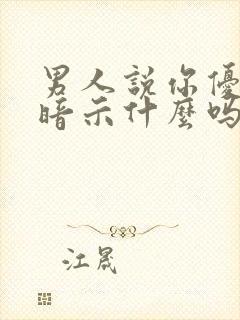 男人説你優
暗示什麼嗎
江晟